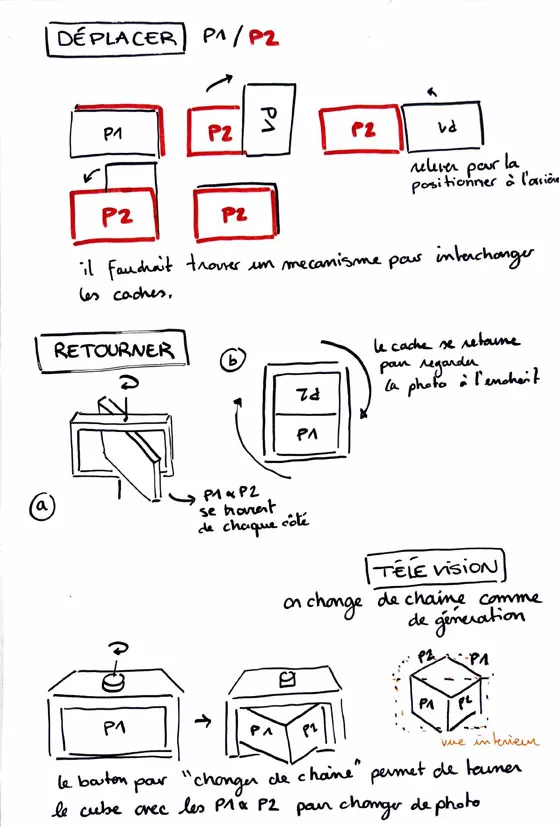 DÉPLACER P1 / P2
P1
P2 P1
P2 P1
relever pour la
positionner à l'arrière
P2
P2
il faudrait trouver un mecanisme pour interchanger
les caches.
RETOURNER
a
P1 & P2
se trouvent
de chaque côté
b
P2
P1
le cache se retourne
pour regarder
la photo à l'endroit
TÉLÉVISION
on change de chaine comme
de génération
P1
P1 P2
P2 P1
P1 P2
vue interieur
le bouton pour "changer de chaine" permet de tourner
le cube avec les P1 & P2 pour changer de photo